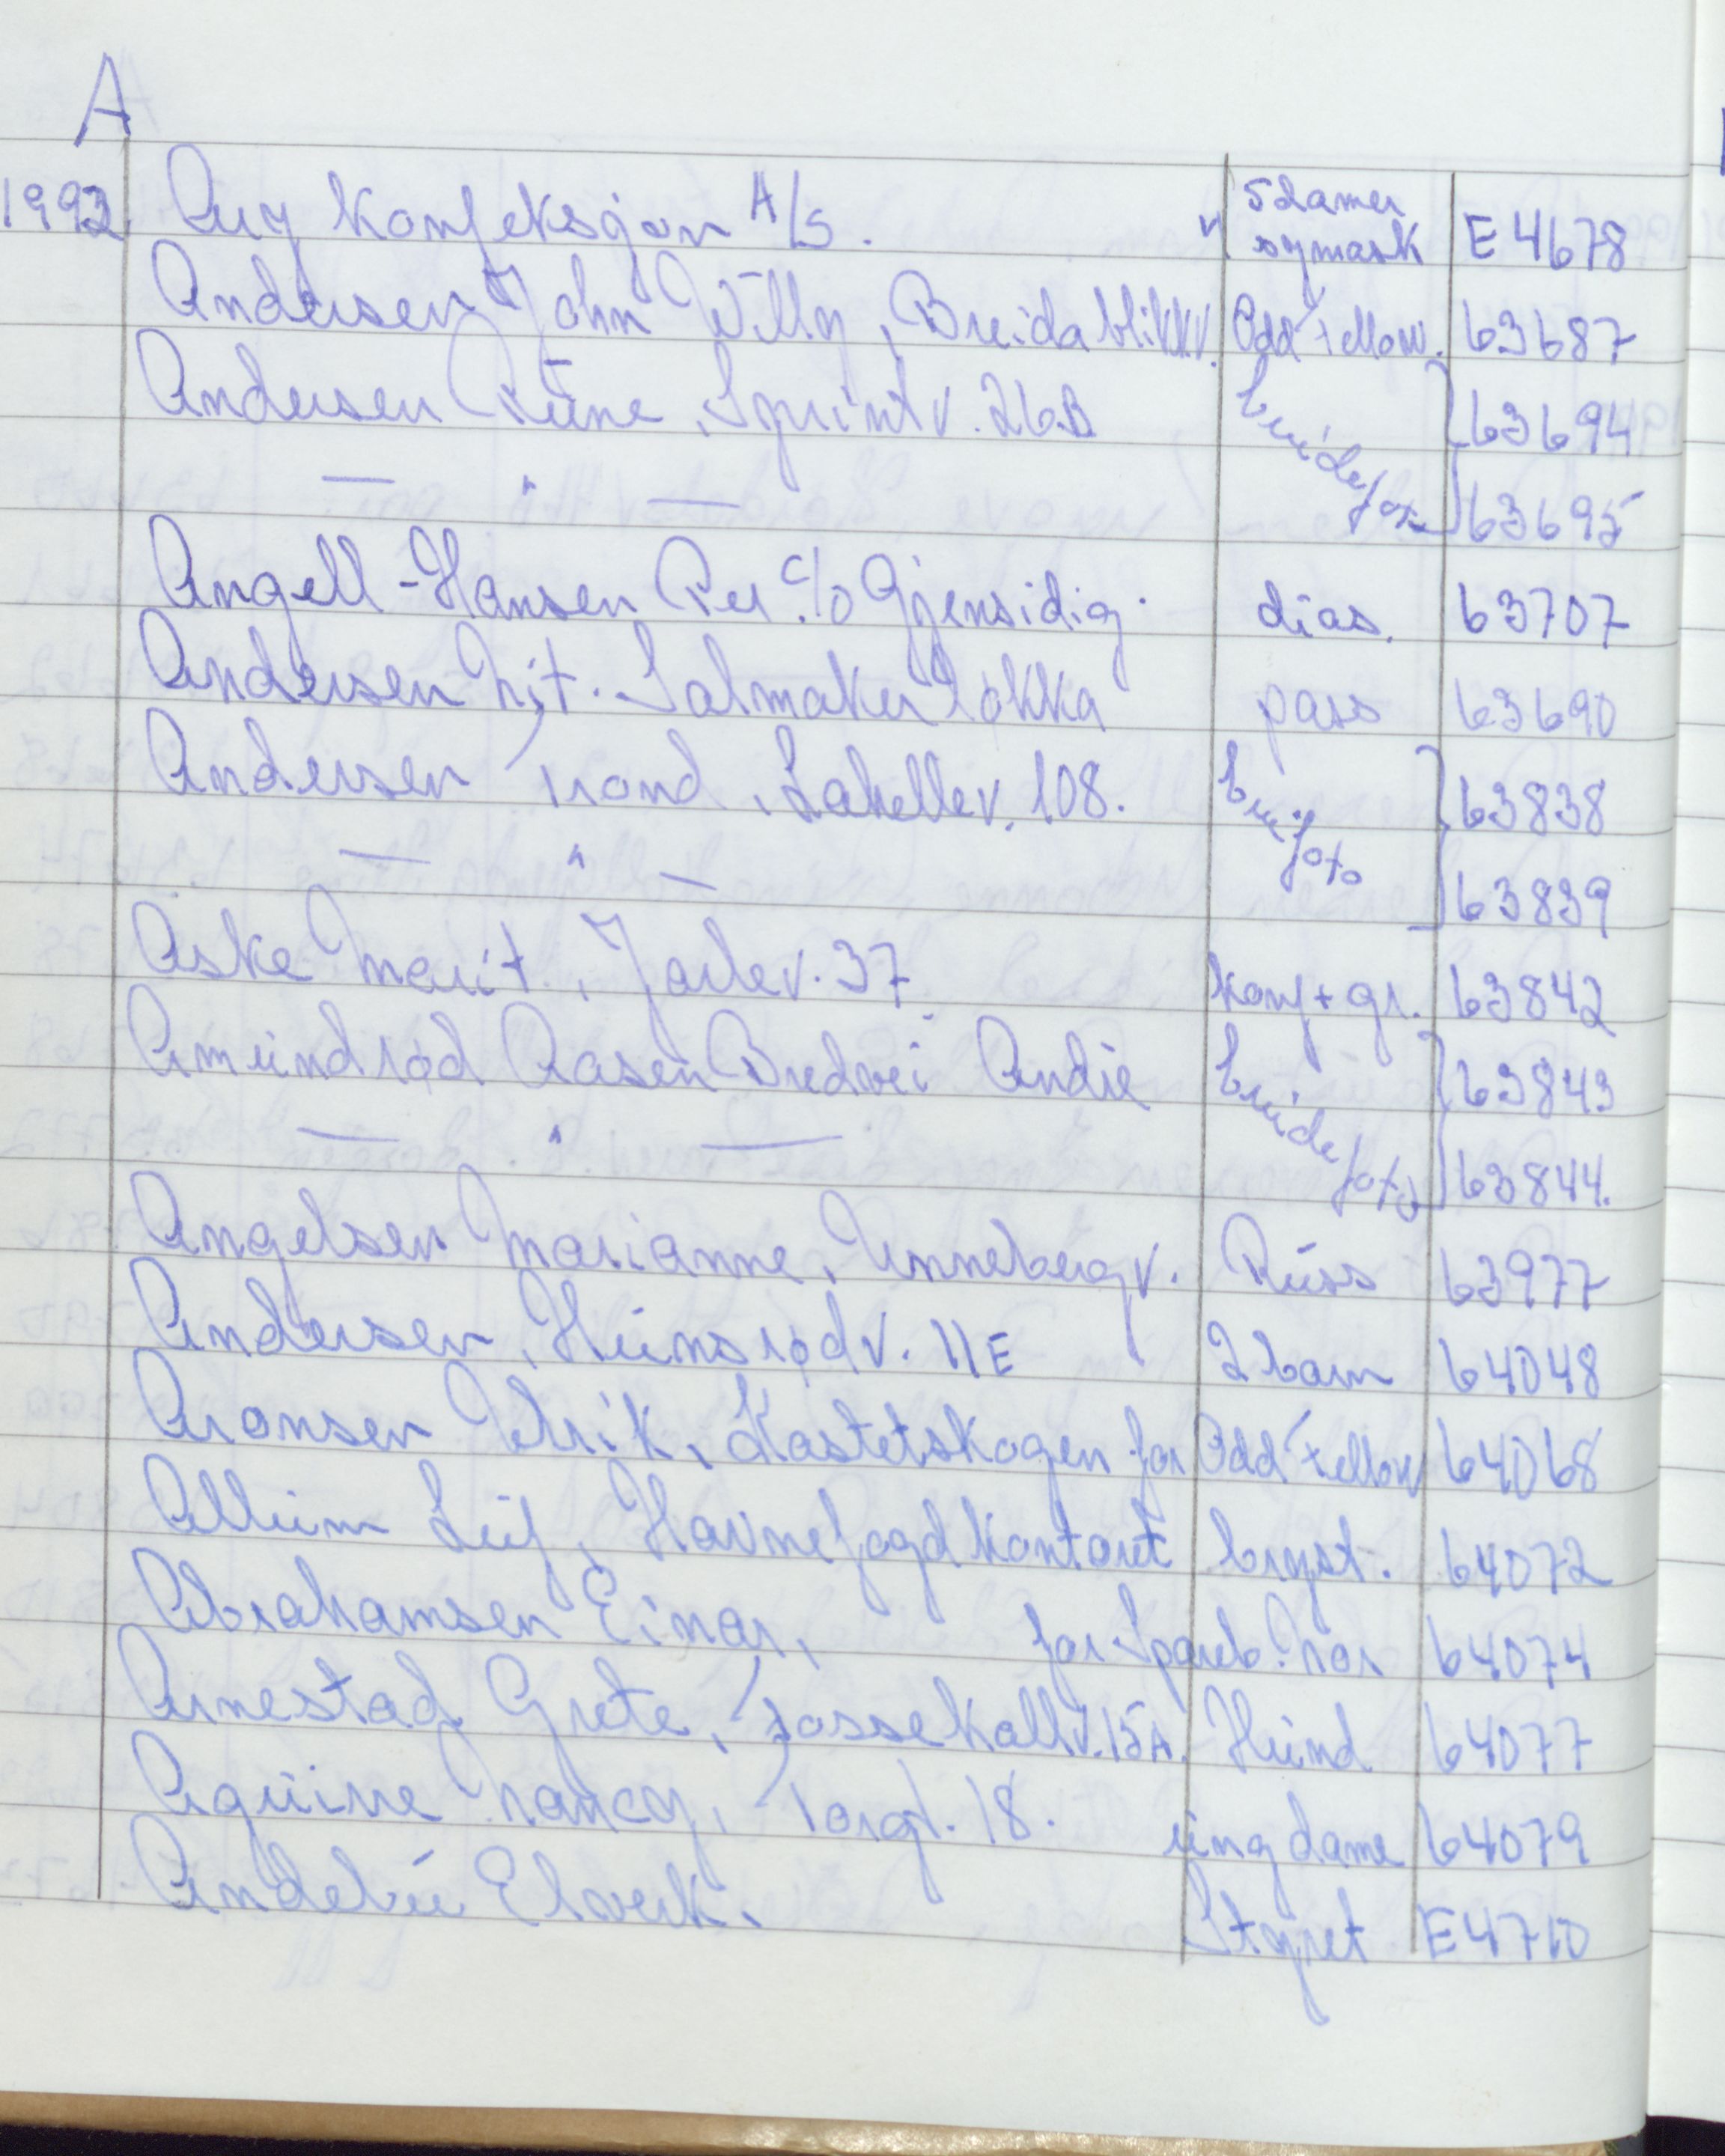 A
1992 Any Konfeksjon A/S. 5 damer symask E 4678
Andersen John Willy, Breidablikkv. Odd Fellow. 63687
Andersen Rune, Sprintv. 26B brudefoto 63694
— " — 63695
Angell-Hansen Per c/o Gjensidig. dias. 63707
Andersen Salmakerløkka pass 63690
Andersen Trond, Lahellev. 108. brudefoto 63838
— " — 63839
Aske Marit, Jarlev. 37. konf + gr. 63842
Amundrød Aasen Bredvei Andre brudefoto 63843
— " — 63844.
Angelsen Marianne, Unnebergv. Russ 63977
Andersen, Hunsrødv. 11E 2 barn 64048
Aronsen Ulrik, Kastetskogen for Odd Fellow 64068
Allum Leif, Havnefogdkontoret bryst. 64072
Abrahamsen Einar, for Spareb. Nor 64074
Arnestad Grete, Fossekallv. 15A. Hund 64077
Aguirre Nancy, Torgt. 18. ung dame 64079
Andebu Elverk. Styret E4710